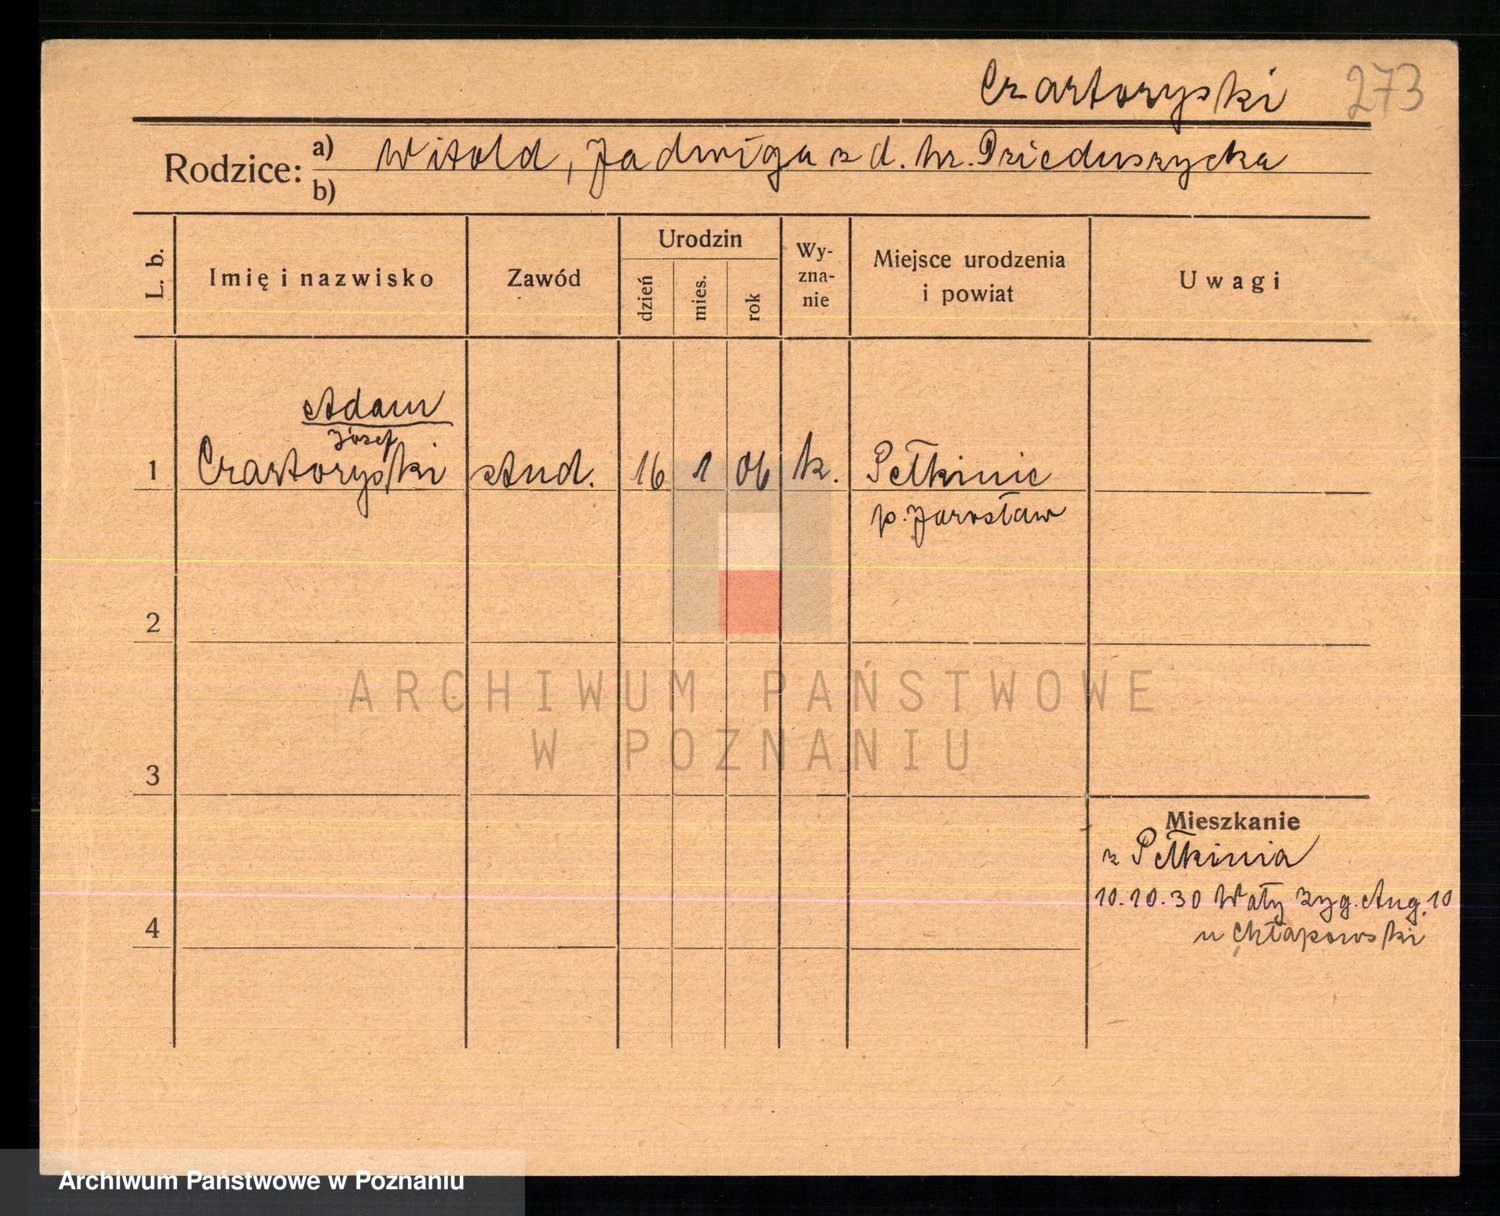 Czartoryski 273
Rodzice: a) Witold, Jadwiga z d. hr. Dzieduszycka
b)
L. b.
Imię i nazwisko
Zawód
Urodzin
dzień
mies.
rok
Wy-
zna-
nie
Miejsce urodzenia
i powiat
Uwagi
Adam
Józef
1 Czartoryski stud. 16 1 06 k. Pełkinie
p. Jarosław
2
3
4
Mieszkanie
z Pełkinia
10.10.30 Wały Zyg. Aug. 10
u Chłapowski
ARCHIWUM PAŃSTWOWE
W POZNANIU
Archiwum Państwowe w Poznaniu